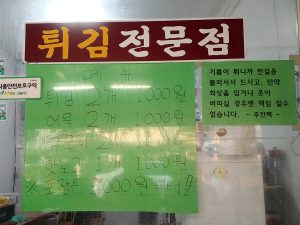 튀김 전문점
메 뉴
튀김 개 1000원
어묵 2개 1000원
1000원
핫도그 1개 1000원
※ 포장은 2,000원 부터!!
품안전보호구역
기름이 튀니까 한걸음
물러서서 드시고, 만약
화상을 입거나 옷이
버리실 경우엔 책임 질수
없습니다. - 주인백 -